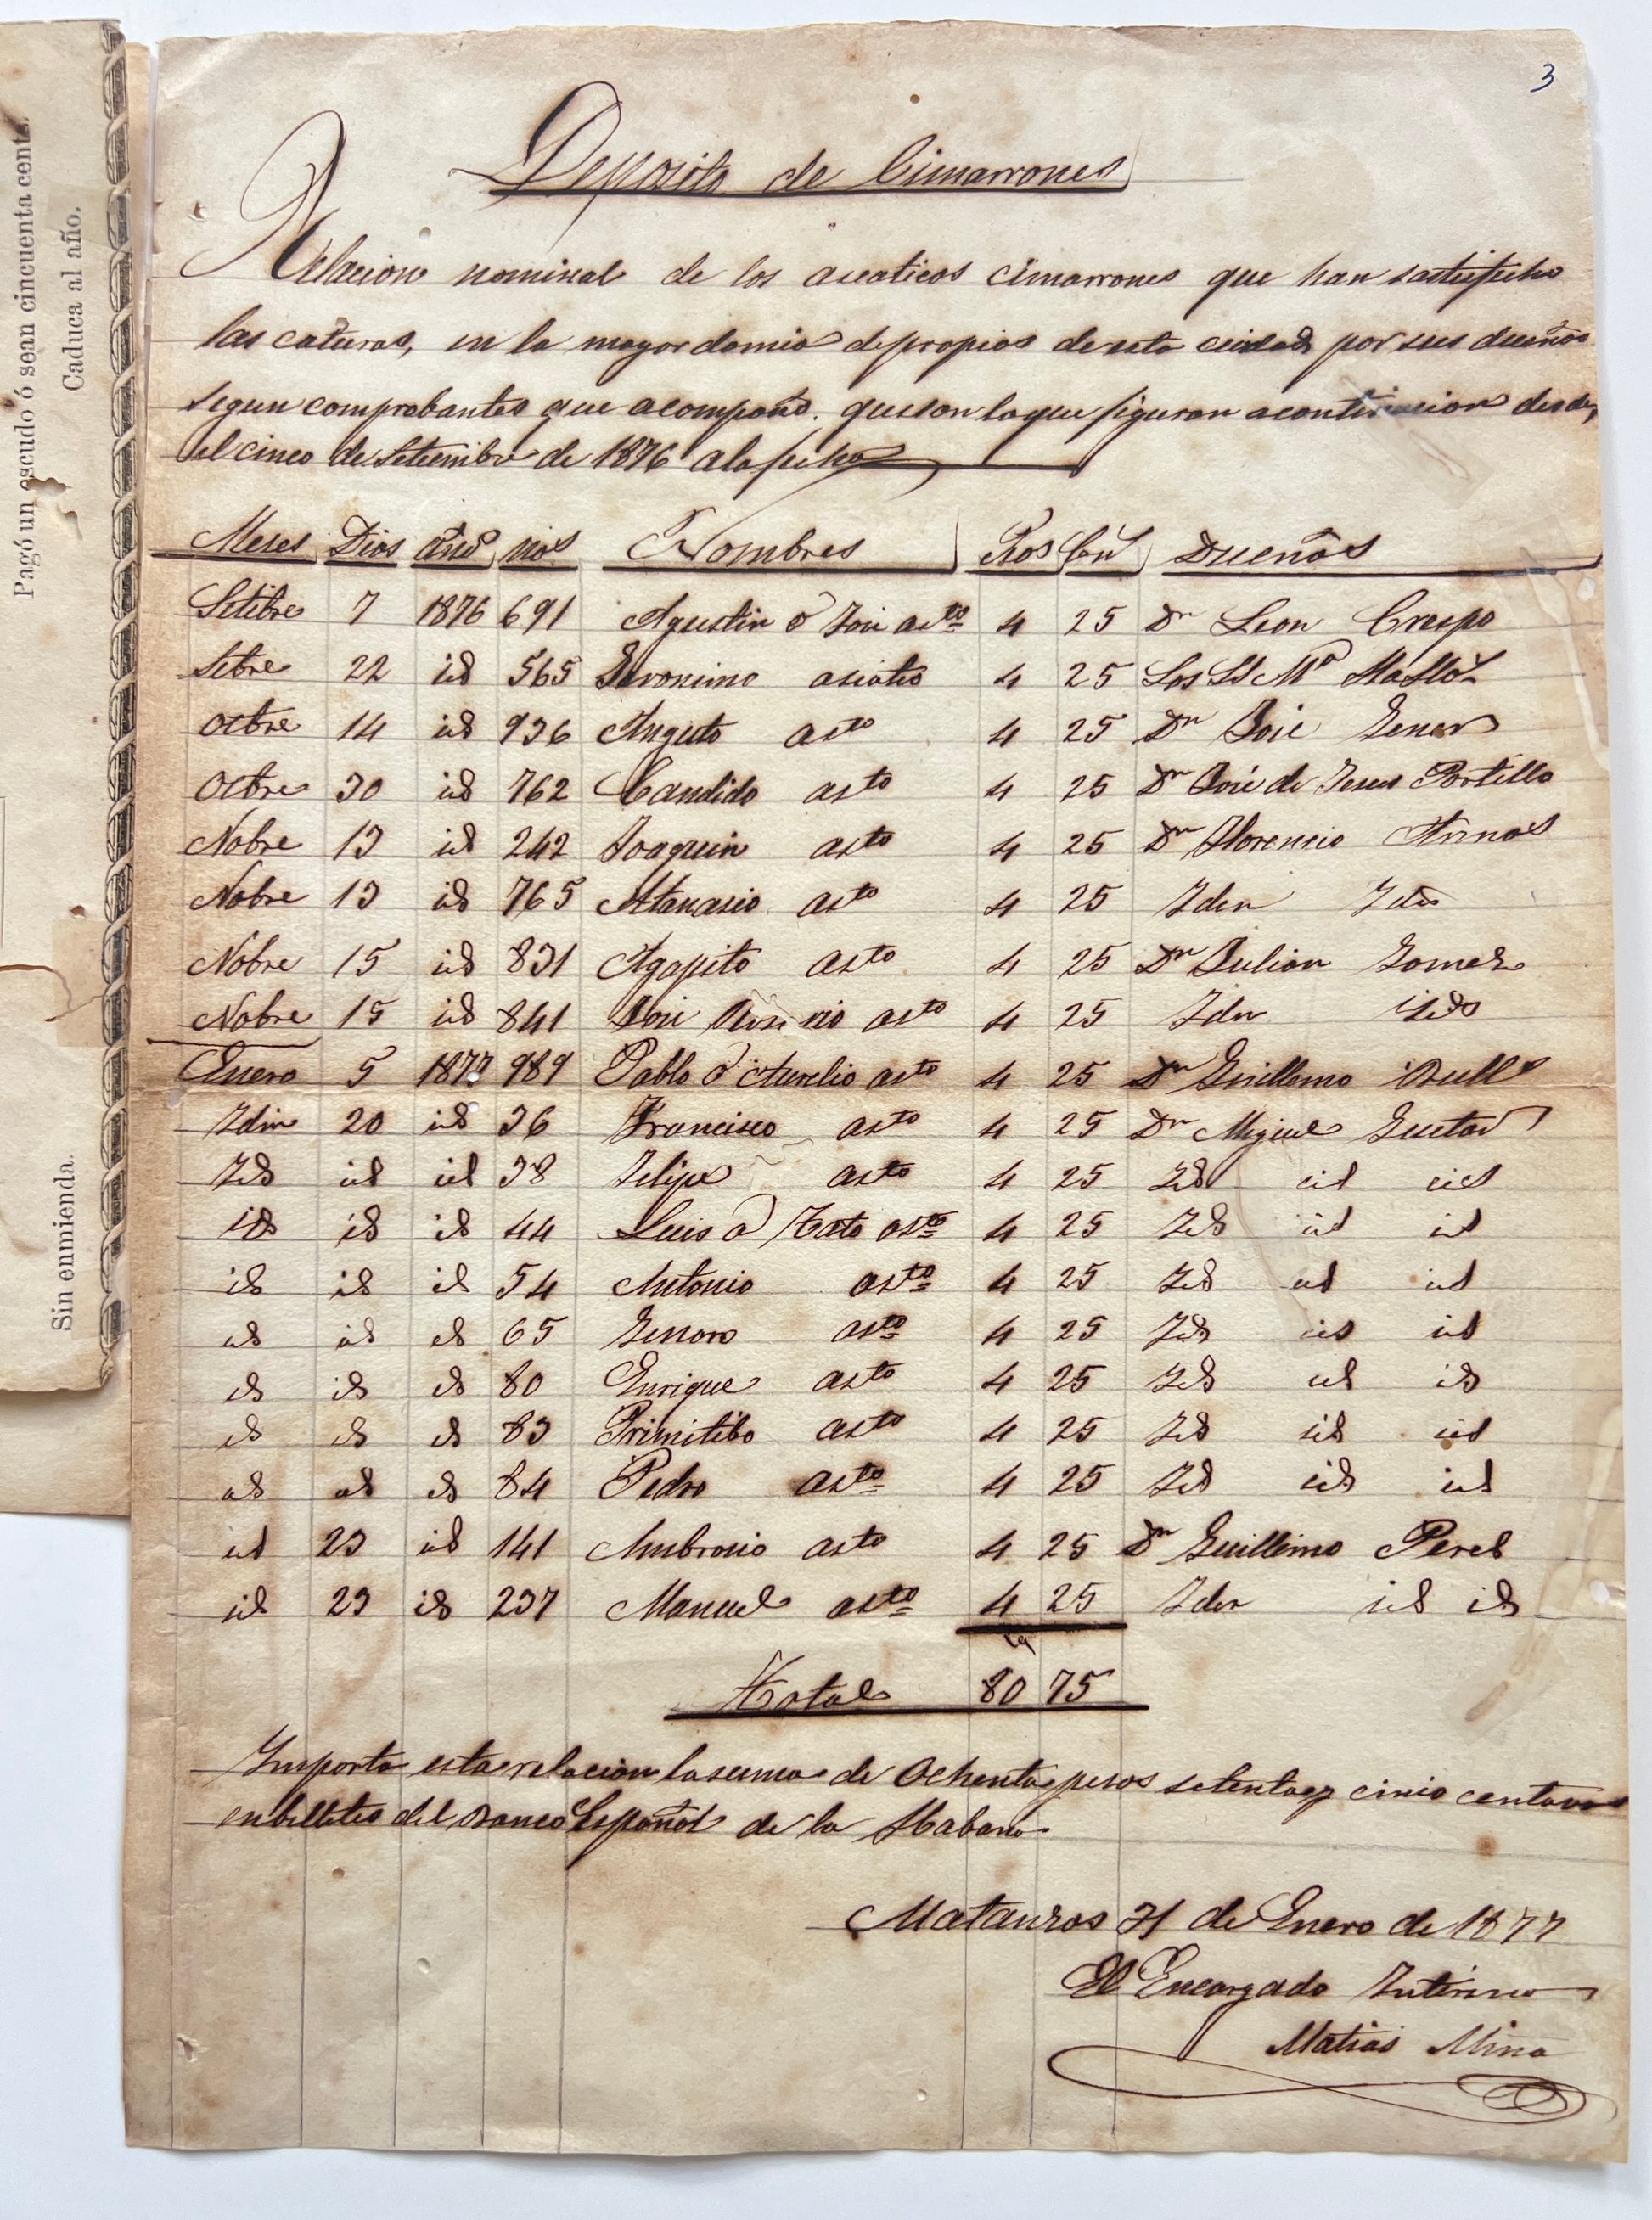 3
Deposito de Cimarrones
Relacion nominal de los aciaticos cimarrones que han sastisfecho
las caturas, en la mayordomia depropios deesta ciudad por sus dueños
segun comprobantes que acompaño. queson laque figuran acontinuacion desde
el cinco de Setiembre de 1876 alafecha
Meses Dias año nos Nombres Psos Cen Dueños
Setibre 7 1876 691 Agustin o José asto 4 25 Dn Leon Crespo
Setbre 22 id 565 Geronimo asiatco 4 25 Los Ss Ma
Octbre 14 id 936 Augusto asto 4 25 Dn José Gener
Octbre 30 id 762 Candido asto 4 25 Dn José de Jesus Portillo
Nobre 13 id 242 Joaquin asto 4 25 Dn Florencio Armas
Nobre 13 id 765 Atanasio asto 4 25 Iden Iden
Nobre 15 id 831 Agapito asto 4 25 Dn Julian Gomez
Nobre 15 id 841 José asto 4 25 Iden id
Enero 5 1877 989 Pablo o Aurelio asto 4 25 Dn Guillermo Bull
Idin 20 id 36 Francisco asto 4 25 Dn Miguel
Id id id 38 Felipe asto 4 25 Id id id
id id id 44 Luis o Tato asto 4 25 Id id id
id id id 54 Antonio asto 4 25 Id id id
id id id 65 Genaro asto 4 25 Id id id
id id id 80 Enrique asto 4 25 Id id id
id id id 83 Primitibo asto 4 25 Id id id
id id id 84 Pedro asto 4 25 Id id id
id 23 id 141 Ambrosio asto 4 25 Dn Guillermo Peres
id 23 id 237 Manuel asto 4 25 Iden id id
Total 80 75
Importa esta relacion lasuma de Ochenta pesos setentay cinco centavos
enbilletes del Banco Español de la Habana
Matanzas 31 de Enero de 1877
El Encargado Interino
Matias Mina
Pagó un escudo ó sean cincuenta cents.
Caduca al año.
Sin enmienda.